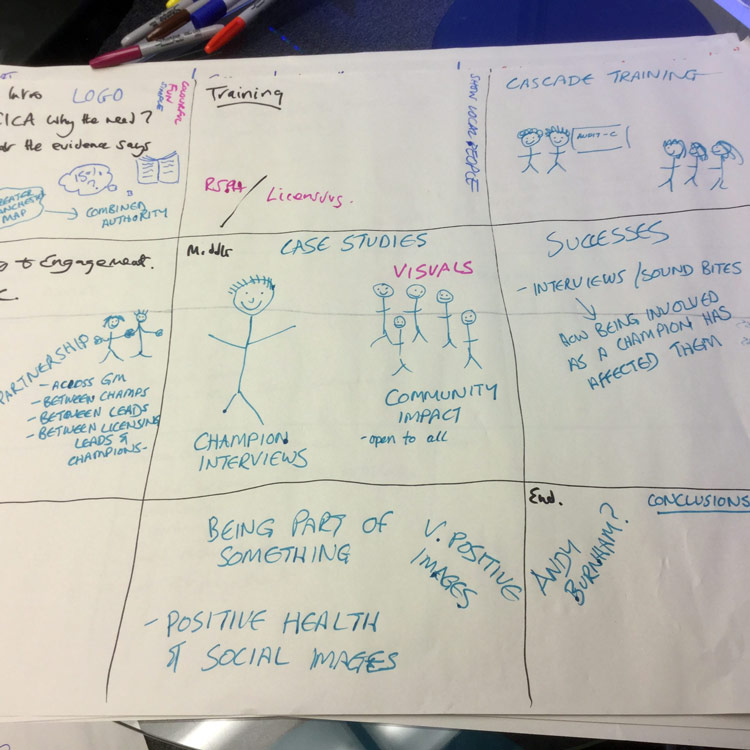 Intro LOGO
COLOURFUL
FUN
SIMPLE
CICA Why the need?
the evidence says
15%?
MAP
COMBINED
AUTHORITY
Training
RSPH / Licensing.
SHOW LOCAL PEOPLE
CASCADE TRAINING
AUDIT-C
to Engagement.
C.
PARTNERSHIP
- ACROSS GM
- BETWEEN CHAMPS
- BETWEEN LEADS
- BETWEEN LICENSING
LEADS &
CHAMPIONS-
Middle
CASE STUDIES
VISUALS
CHAMPION
INTERVIEWS
COMMUNITY
IMPACT
- open to all
SUCCESSES
- INTERVIEWS / SOUND BITES
HOW BEING INVOLVED
AS A CHAMPION HAS
AFFECTED THEM
BEING PART OF
SOMETHING
V. POSITIVE
IMAGES
- POSITIVE HEALTH
& SOCIAL IMAGES
End.
CONCLUSIONS
ANDY
BURNHAM?